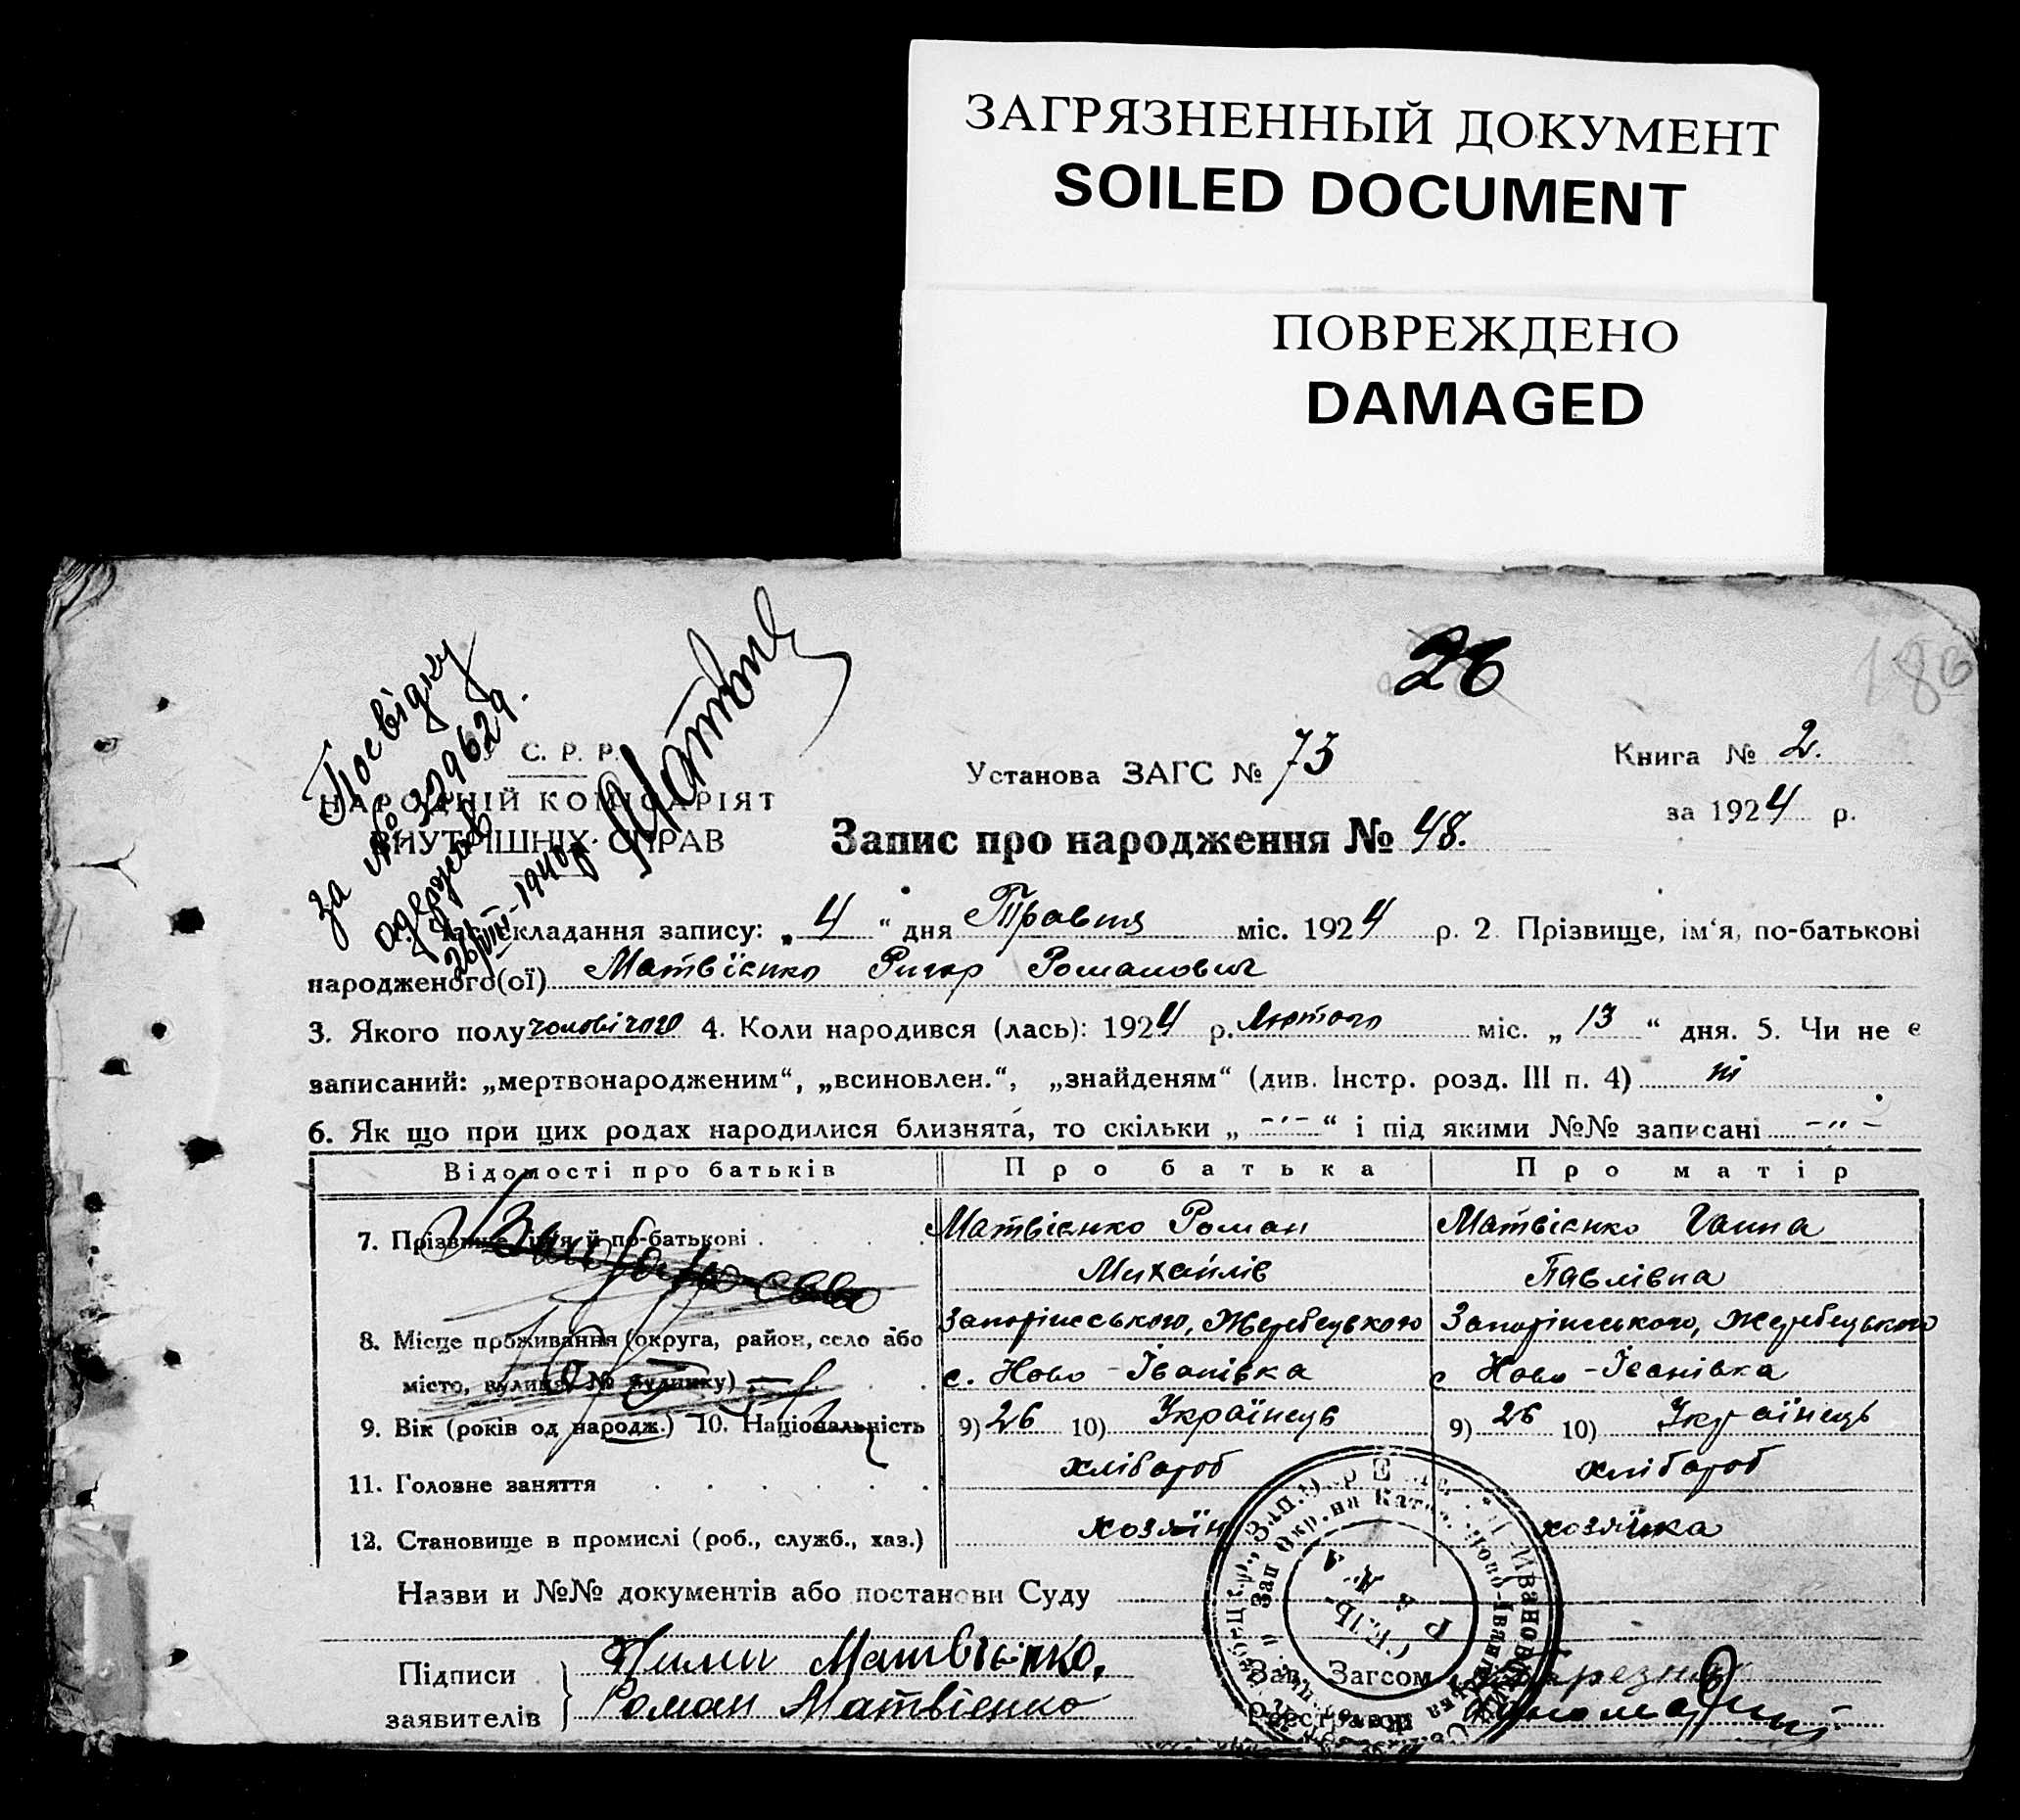 ЗАГРЯЗНЕННЫЙ ДОКУМЕНТ
SOILED DOCUMENT
ПОВРЕЖДЕНО
DAMAGED
26
186
Посвідку
за № 329629.
одержав
26/VIII-1940р
С. Р. Р.
НАРОДНІЙ КОМІСАРІЯТ
ВНУТРІШНІХ СПРАВ
Установа ЗАГС № 73
Книга № 2.
за 1924 р.
Запис про народження № 48.
складання запису: „ 4 “ дня Травня міс. 1924 р. 2. Прізвище, ім‘я, по-батькові
народженого(ої) Матвієнко Ригор Романович
3. Якого полу чоловічого 4. Коли народився (лась): 1924 р. Лютого міс. „ 13 “ дня. 5. Чи не є
записаний: „мертвонародженим“, „всиновлен.“, „знайденям“ (див. Інстр. розд. III п. 4) ні
6. Як що при цих родах народилися близнята, то скільки „ -''- “ і під якими №№ записані -''-
Відомості про батьків Про батька Про матір
7. Прізвище, ім'я й по-батькові Матвієнко Роман Матвієнко Ганна
Михайлів Павлівна
8. Місце проживання (округа, район, село або Запоріжського, Жеребецького Запоріжського, Жеребецького
місто, вулиця, № будинку) с. Ново-Іванівка с Ново-Іванівка
9. Вік (років од народж.) 10. Національність 9) 26 10) Українець 9) 26 10) Українець
11. Головне заняття хлібороб хлібороб
12. Становище в промислі (роб., служб., хаз.) хозяїн хозяйка
Назви и №№ документів або постанови Суду
Підписи Матвієнко,
заявителів Роман Матвієнко
Зав. Загсом
Реєстратор